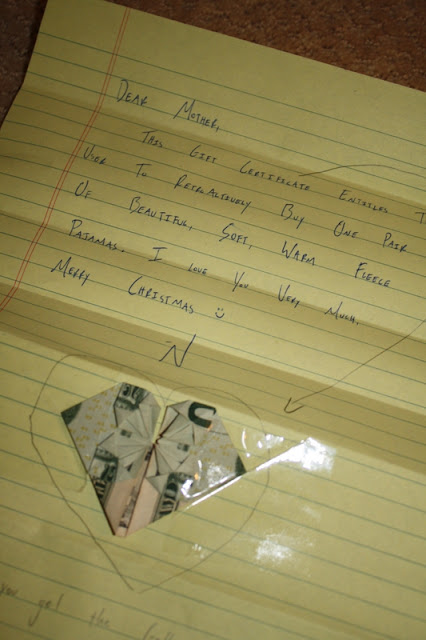 DEAR MOTHER,
THIS GIFT CERTIFICATE ENTITLES T
USER TO RETROACTIVELY BUY ONE PAIR
OF BEAUTIFUL, SOFT, WARM FLEECE
PAJAMAS. I LOVE YOU VERY MUCH.
MERRY CHRISTMAS ☺
N
you got the